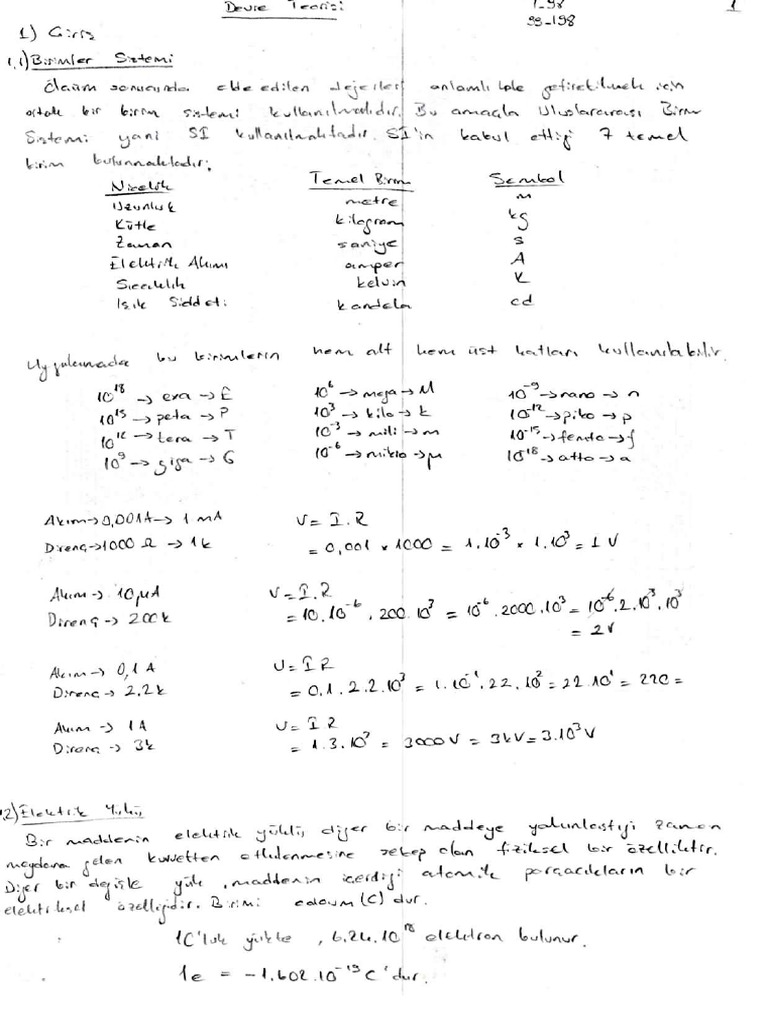 Devre Teorisi 1-98 1
99-198
1) Giriş
1.1) Birimler Sistemi
Ölçüm sonucunda elde edilen değerleri anlamlı hale getirebilmek için
ortak bir birim sistemi kullanılmalıdır. Bu amaçla Uluslararası Birim
Sistemi yani SI kullanılmaktadır. SI'in kabul ettiği 7 temel
birim bulunmaktadır;
Nicelik Temel Birim Sembol
Uzunluk metre m
Kütle kilogram kg
Zaman saniye s
Elektrik Akımı amper A
Sıcaklık kelvin K
Işık Şiddeti kandela cd
Uygulamada bu birimlerin hem alt hem üst katları kullanılabilir.
10^18 → exa → E 10^6 → mega → M 10^-9 → nano → n
10^15 → peta → P 10^3 → kilo → k 10^-12 → piko → p
10^12 → tera → T 10^-3 → mili → m 10^-15 → femto → f
10^9 → giga → G 10^-6 → mikro → μ 10^18 → atto → a
Akım → 0,001A → 1 mA V = I.R
Direnç → 1000 Ω → 1k = 0,001 × 1000 = 1.10^-3 × 1.10^3 = 1 V
Akım → 10μA V = I.R
Direnç → 200k = 10.10^-6 . 200.10^3 = 10^-6 . 2000.10^3 = 10^-6.2.10^3.10^3
= 2V
Akım → 0,1 A V = I R
Direnç → 2,2k = 0,1 . 2.2.10^3 = 1.10^-1 . 22.10^2 = 22.10^1 = 220 =
Akım → 1A V = I R
Direnç → 3k = 1.3.10^3 = 3000V = 3kV = 3.10^3 V
2) Elektrik Yükü
Bir maddenin elektrik yükü, diğer bir maddeye yakınlaştığı zaman
meydana gelen kuvvetten etkilenmesine sebep olan fiziksel bir özelliktir.
Diğer bir değişle yük, maddenin içerdiği atomik parçacıkların bir
elektriksel özelliğidir. Birimi coloum (C) dur.
1C'luk yükte, 6.24.10^18 elektron bulunur.
1e = -1.602.10^-19 C'dur.